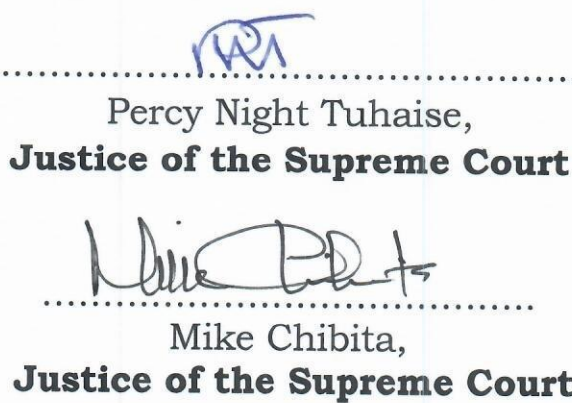 ....................................................
Percy Night Tuhaise,
Justice of the Supreme Court
....................................................
Mike Chibita,
Justice of the Supreme Court